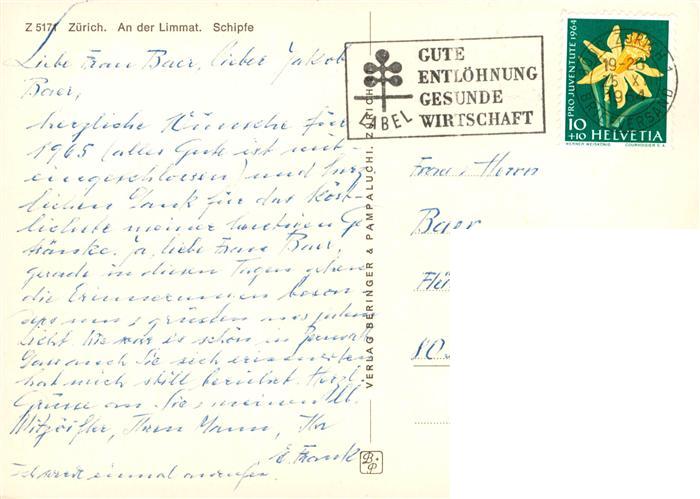 Z 5171 Zürich. An der Limmat. Schipfe
Liebe Frau Baer, lieber Jakob
Baer,
herzliche Wünsche für
1965 (alles Gute ist mit-
eingeschlossen) und herz-
lichen Dank für das Köst-
lichste meiner heutigen Ge-
tränke. Ja, liebe Frau Baer,
gerade in diesen Tagen gehen
die Erinnerungen beson-
ders um & grüssen aus jedem
Licht. Wie war es schön in
Dass auch Sie sich erinnerten
hat mich still berührt. Herzl.
Grüsse an Sie, meinen lb.
Ihren Mann, Ihr
E. Frank
Ich werde einmal anrufen.
VERLAG BERINGER & PAMPALUCHI, ZÜRICH
B P
GUTE
ENTLÖHNUNG
GESUNDE
WIRTSCHAFT
BIBEL
ZÜRICH
19-20
X
BRIEFVERSAND
PRO JUVENTUTE 1964
10
+10 HELVETIA
WERNER WEISKÖNIG COURVOISIER S.A.
Frau & Herrn
Baer